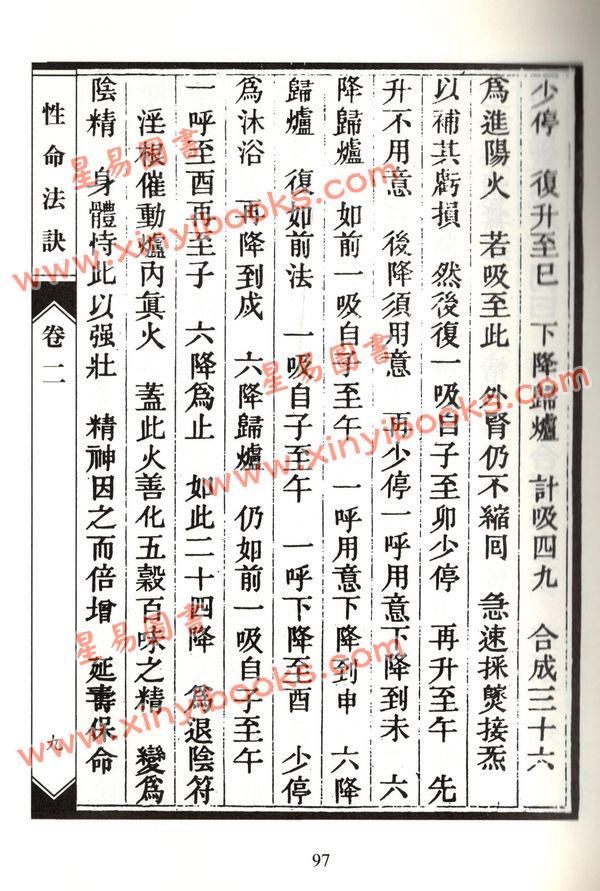 少停　復升至巳　下降歸爐　計吸四九　合成三十六
為進陽火　若吸至此　外腎仍不縮回　急速採𤋱接炁
以補其虧損　然後復一吸自子至卯少停　再升至午　先
升不用意　後降須用意　再少停一呼用意下降到未　六
降歸爐　如前一吸自子至午　一呼用意下降到申　六降
歸爐　復如前法　一吸自子至午　一呼下降至酉　少停
為沐浴　再降到戍　六降歸爐　仍如前一吸自子至午
一呼至酉再至子　六降為止　如此二十四降　為退陰符
淫根催動爐內真火　蓋此火善化五穀百味之精　變為
陰精　身體恃此以强壯　精神因之而倍增　延壽保命
性命法訣　卷二　九
97
星易圖書
www.xinyibooks.com
星易圖書
www.xinyibooks.com
星易圖書
www.xinyibooks.com